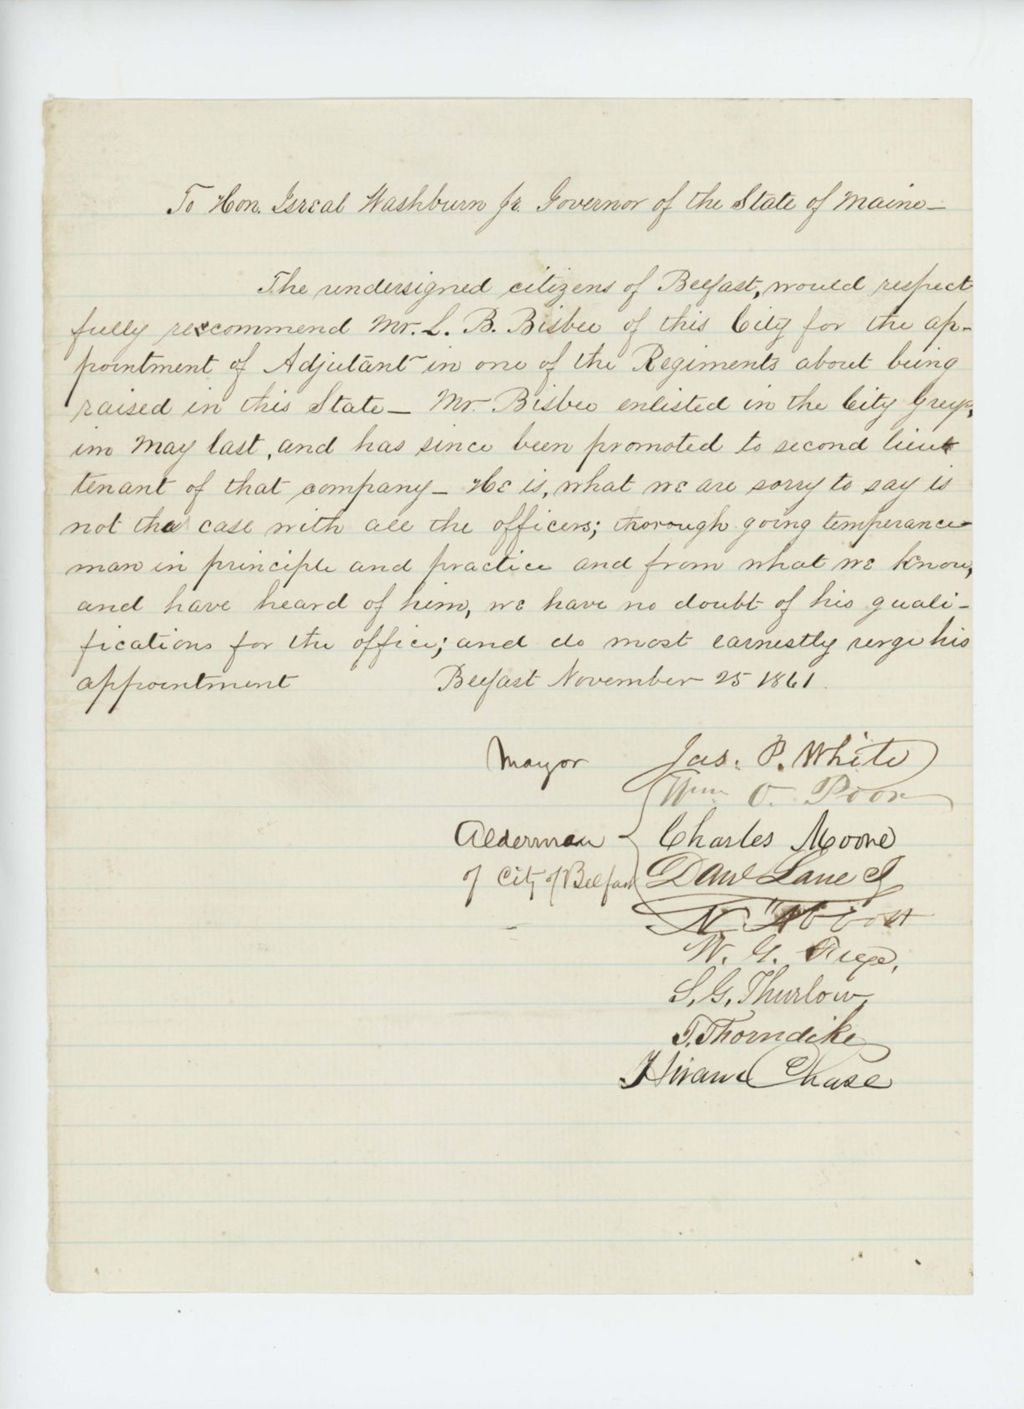 To Hon. Isreal Washburn Jr. Governor of the State of Maine—
The undersigned citizens of Belfast, would respect
fully reccommend Mr. L. B. Bisbee of this City for the ap-
pointment of Adjutant in one of the Regiments about being
raised in this State— Mr Bisbee enlisted in the City Greys,
in May last, and has since been promoted to second lieut
tenant of that company— He is, what we are sorry to say is
not the case with all the officers; thorough going temperance
man in principle and practice and from what we know,
and have heard of him, we have no doubt of his quali-
fications for the office; and do most earnestly urge his
appointment Belfast November 25 1861.
Mayor Jas. P. White
Wm O. Poor
Aldermen Charles Moore
of City of Belfast Danl Lane Jr
N. Abbott
W. G.
S. G. Thurlow
T. Thorndike
Hiram Chase